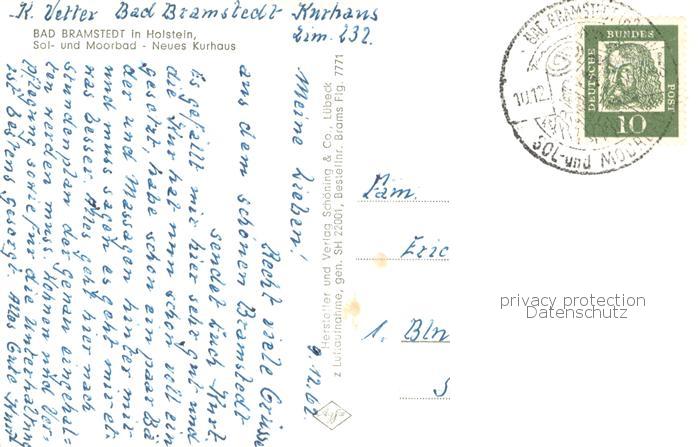 K. Vetter Bad Bramstedt Kurhaus
Zim. 232.
BAD BRAMSTEDT in Holstein,
Sol- und Moorbad - Neues Kurhaus
9.12.62
Meine Lieben!
Recht viele Grüsse
aus dem schönen Bramstedt
sendet Euch Kurt.
Es gefällt mir hier sehr gut und
die Kur hat nun schon voll ein-
gesetzt, habe schon ein paar Bä-
der und Massagen hinter mir
und muss sagen es geht mir et-
was besser. Alles geht hier nach
Stundenplan der genau eingehal-
ten werden muss. Wohnen und Ver-
pflegung sowie für die Unterhaltung
ist bestens gesorgt. Alles Gute Kurt
Hersteller und Verlag Schöning & Co., Lübeck
z Luftaufnahme, gen. SH 22001, Bestellnr. Brams Flg. 7771
Agfa
Fam.
Eric
1. Bln
S
BAD BRAMSTEDT
10.12.
SOL- und MOORBAD
DEUTSCHE BUNDES POST
10
privacy protection
Datenschutz